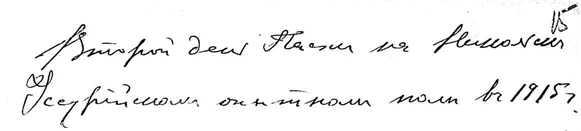 15
Второй день Пасхи на Никольск
Уссурійскомъ опытномъ полѣ въ 1915 г.